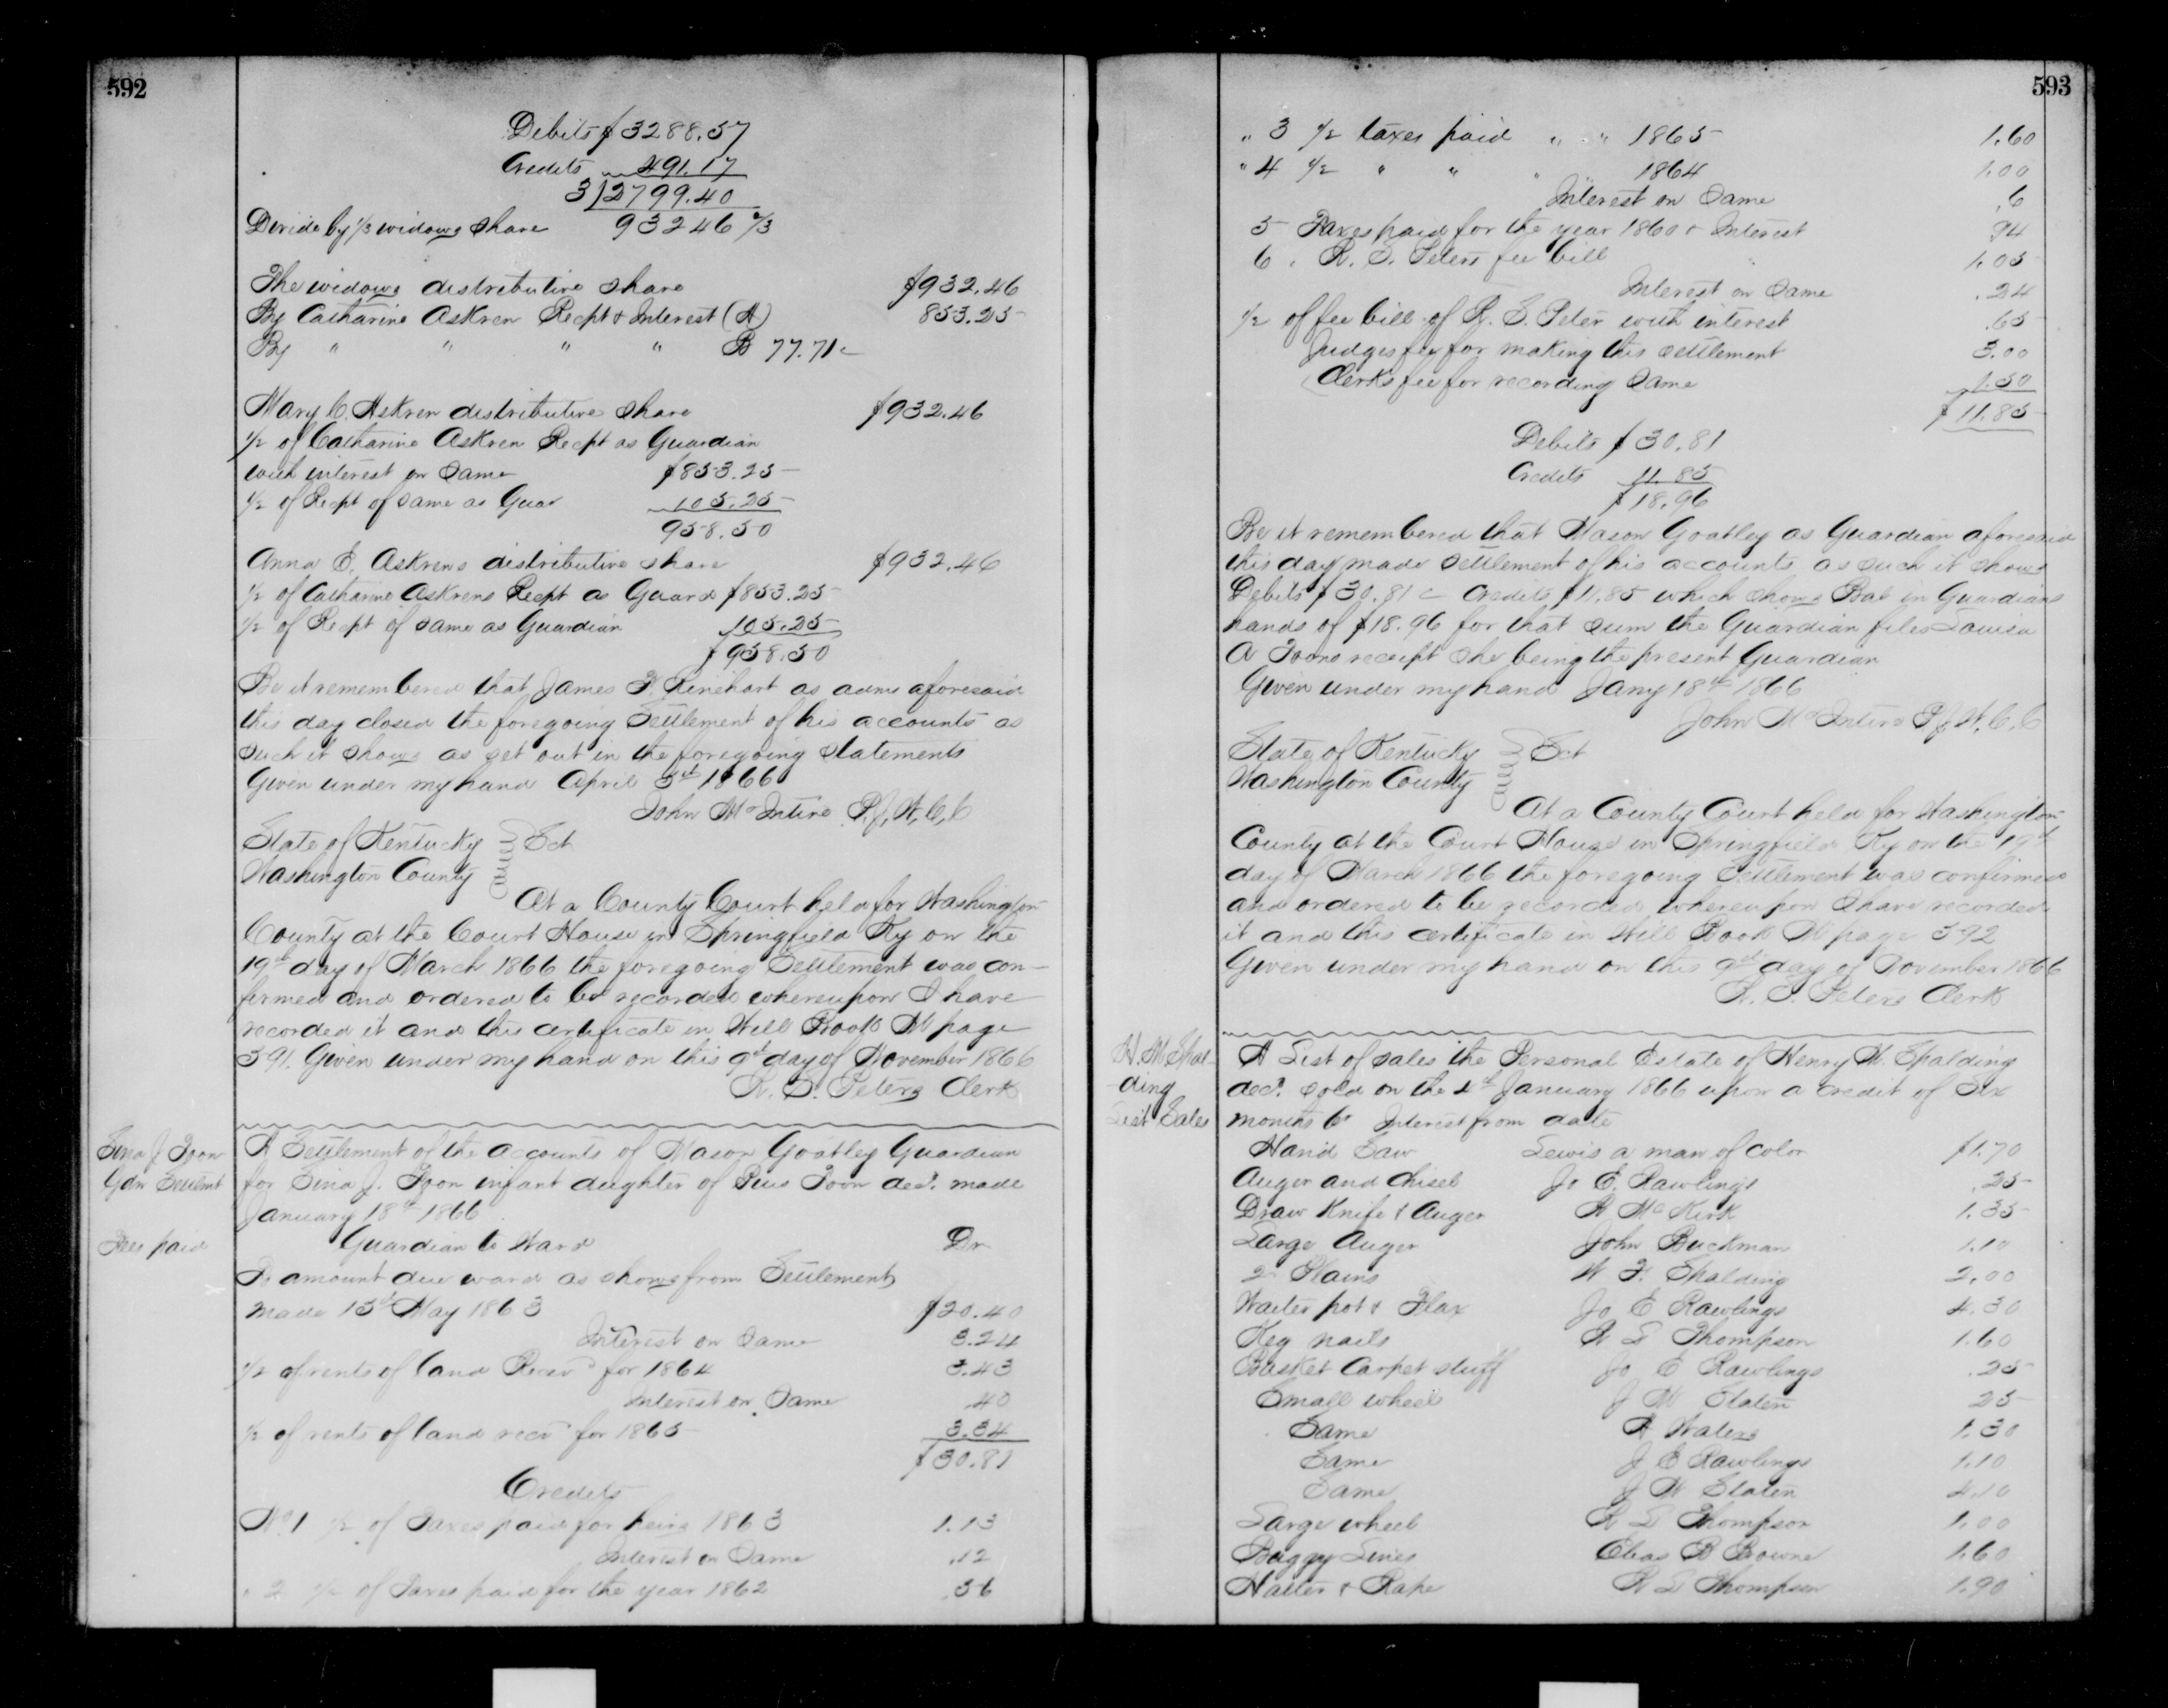 592
Debits $3288.57
Credits 491.17
3)2799.40
Devide by 1/3 widows share 93246 2/3
The widows distributive share $932.46
By Catharine Askren Recpt & Interest (A) 853.25
By " " " " B 77.71 c
Mary C. Askren distributive share $932.46
1/2 of Catharine Askren Recpt as Guardian
with interest on Same $853.25
1/2 of Recpt of same as Guar 105.25
958.50
Anna E. Askrens distributive share $932.46
1/2 of Catharine Askrens Recpt as Guard $853.25
1/2 of Recpt of same as Guardian 105.25
$958.50
Be it remembered that James F. Rinehart as admr aforesaid
this day closed the foregoing Settlement of his accounts as
such it shows as set out in the foregoing statements
Given under my hand April 3d 1866
John McIntire P.J.W.C.C
State of Kentucky Sct
Washington County
At a County Court held for Washington
County at the Court House in Springfield Ky on the
19th day of March 1866 the foregoing Settlement was con-
firmed and ordered to be recorded whereupon I have
recorded it and this certificate in Will Book M page
591. Given under my hand on this 9th day of November 1866
R. S. Peters Clerk
Sina J Toon
Gdn Settlmt
Fees paid
A Settlement of the accounts of Mason Goatley Guardian
for Sina J. Toon infant daughter of Pius Toon decd. made
January 18th 1866
Guardian to Ward Dr
To amount due ward as shows from Settlement
made 15th May 1863 $20.40
Interest on Same 3.24
1/2 of rents of land Recvd for 1864 3.43
Interest on Same .40
1/2 of rents of land recvd for 1865 3.34
$30.81
Credits
No 1 1/2 of Taxes paid for heirs 1863 1.13
Interest on Same .12
" 2 1/2 of Taxes paid for the year 1862 .56
593
" 3 1/2 taxes paid " " 1865 1.60
" 4 1/2 " " " 1864 1.00
Interest on Same .6
5 Taxes paid for the year 1860 & Interest 94
6 " R. S. Peters fee bill 1.05
Interest on Same .24
1/2 of fee bill of R. S. Peter with interest .65
Judges fee for making this settlement 3.00
Clerks fee for recording Same 1.50
$11.85
Debits $30.81
Credits 11.85
$18.96
Be it remembered that Mason Goatley as Guardian aforesaid
this day made settlement of his accounts as such it shows
Debits $30.81 c Credits $11.85 which shows Bal in Guardians
hands of $18.96 for that sum the Guardian files Louisa
A Toons receipt she being the present Guardian
Given under my hand Jany 18th 1866
John McIntire P.J.W.C.C
State of Kentucky Sct
Washington County
At a County Court held for Washington
County at the Court House in Springfield Ky on the 19th
day of March 1866 the foregoing Settlement was confirmed
and ordered to be recorded whereupon I have recorded
it and this certificate in Will Book M page 592
Given under my hand on this 9th day of November 1866
R. S. Peters Clerk
H. M Spal-
ding
List Sales
A List of sales the Personal Estate of Henry M. Spalding
decd. sold on the 4th January 1866 upon a credit of Six
months Interest from date
Hand Saw Lewis a man of color $1.70
Auger and Chisel Jo E. Rawlings .25
Draw Knife & Auger A McKirk 1.35
Large Auger John Buckman 1.10
2 Plains W F. Spalding 2.00
Waiter pot & Flax Jo E Rawlings 4.30
Keg nails R L Thompson 1.60
Basket Carpet stuff Jo E Rawlings .25
Small wheel J W Slaten 25
Same A Waters 1.30
Same J E Rawlings 1.10
Same J W Slaten 4.10
Large wheel R L Thompson 1.00
Buggy Lines Elias B Browne 1.60
Halter & Rope R L Thompson 1.90